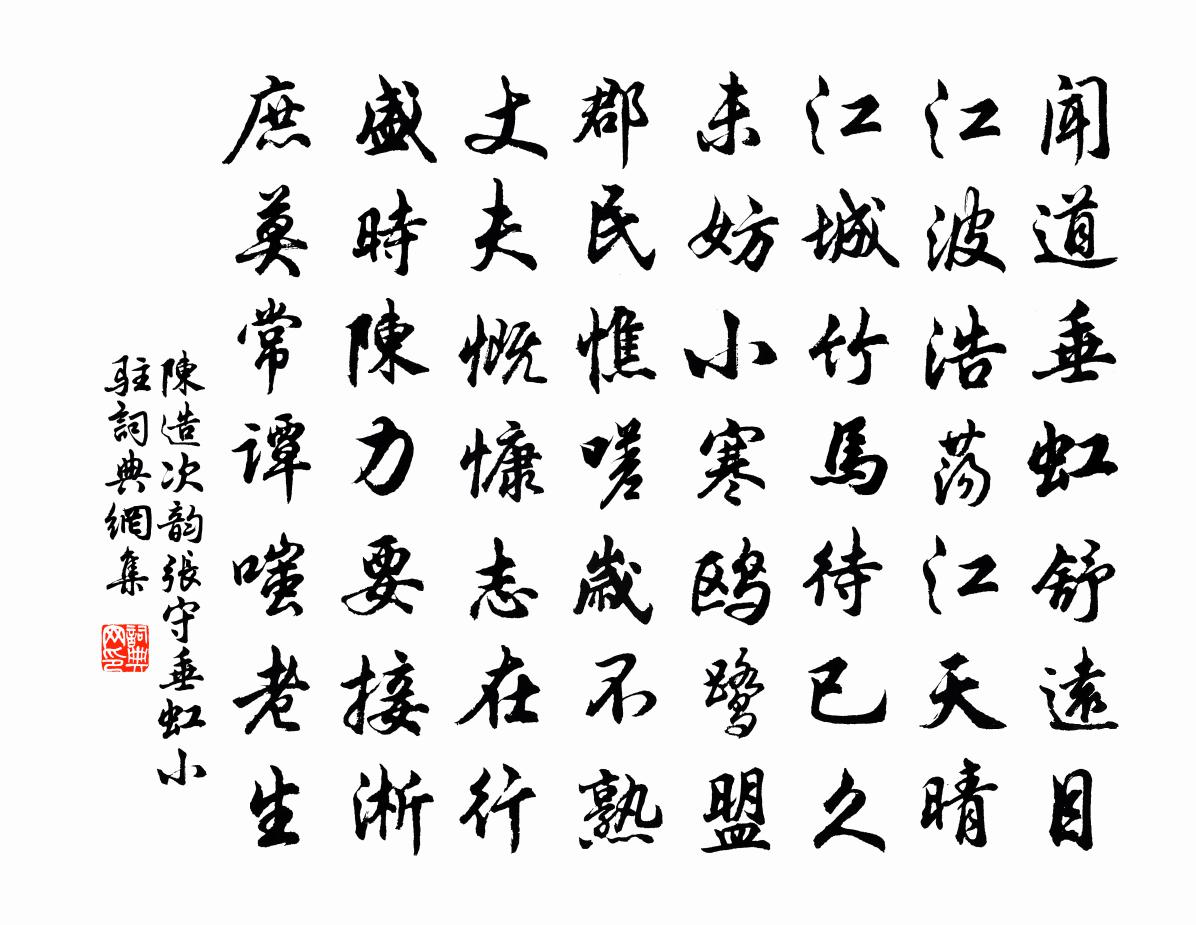 聞道垂虹舒遠目
江波浩蕩江天晴
江城竹馬待已久
未妨小寒鸥鷺盟
郡民憔嗟歲不熟
丈夫慨慷志在行
盛時陳力要接淅
庶莫常谭嗤老生
陳造次韵張守垂虹小
駐詞典網集
詞典
网印